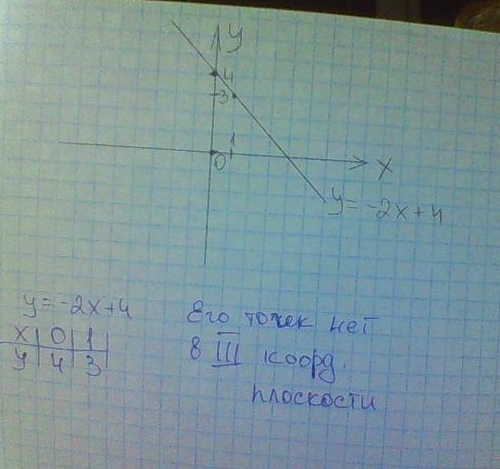 y
4
3
1
0
x
y = -2x+4
y = -2x+4
x | 0 | 1
y | 4 | 3
Его точек нет
в III коорд.
плоскости